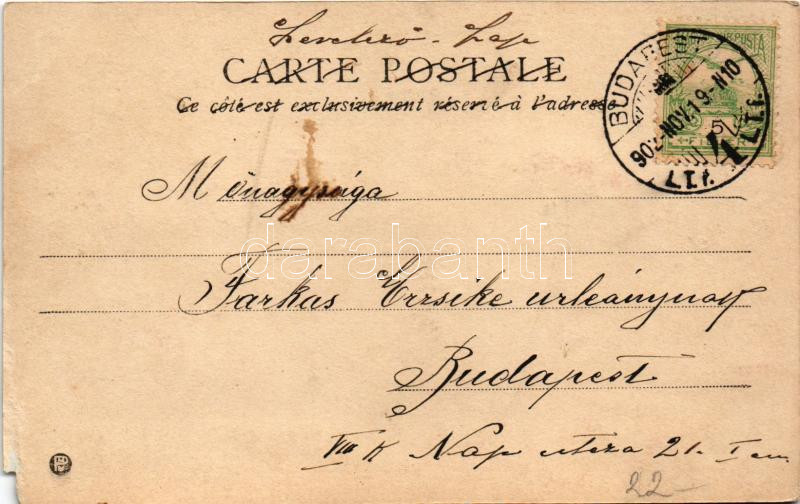 Levelező-Lap
CARTE POSTALE
Ce côté est exclusivement réservé à l'adresse
BUDAPEST
902 NOV. 19 - N10
5
M őnagysága
darabanth
Farkas Erzsike urleánynak
Budapest
VIII K Nap utcza 21. I em
22-